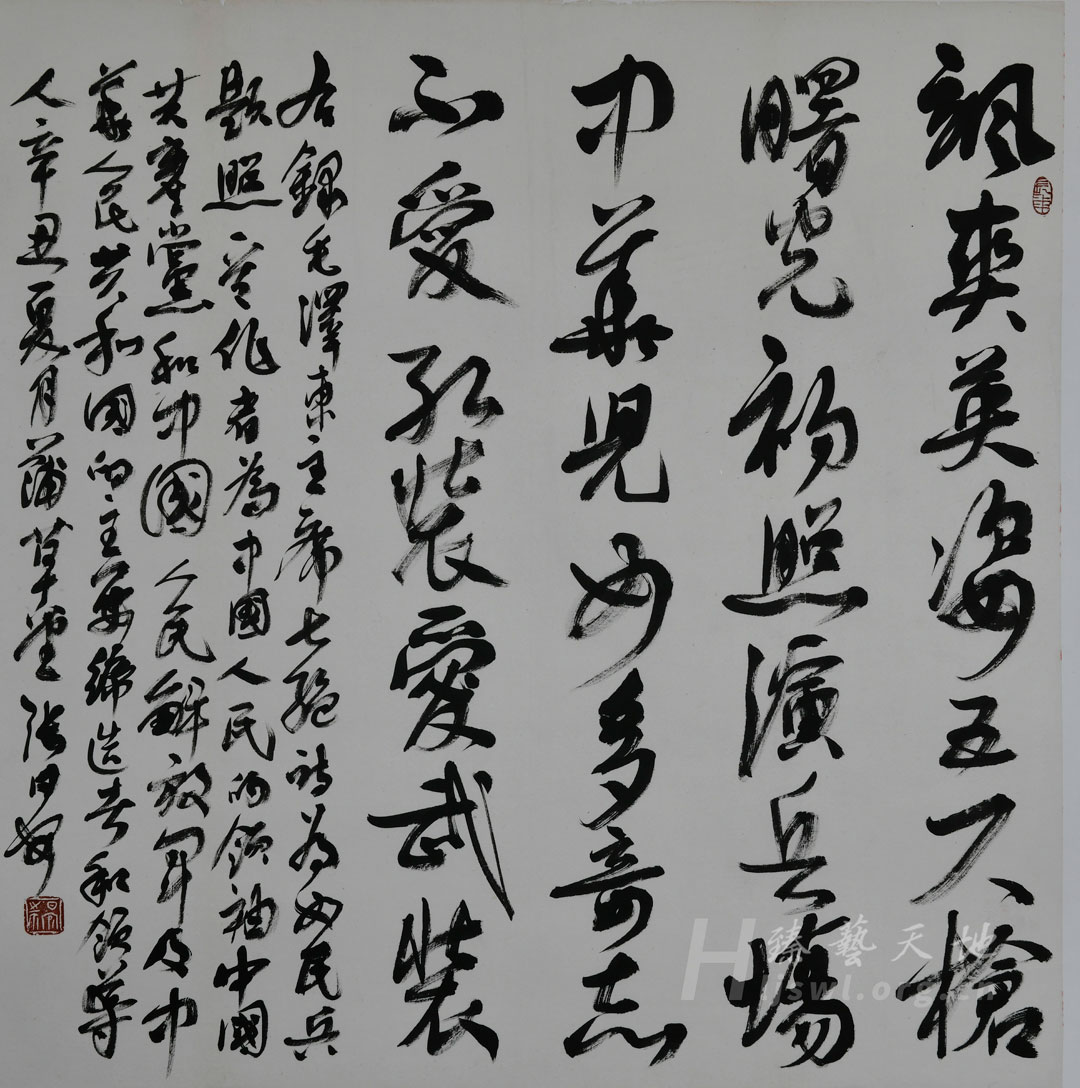 颯爽英姿五尺槍
曙光初照演兵場
中華兒女多奇志
不愛紅裝愛武裝
右錄毛澤東主席七絕詩為女民兵
題照一首作者為中國人民的領袖中國
共產黨和中國人民解放軍及中
華人民共和国的主要締造者和領導
人辛丑夏月蒲草堂張
臻藝天地
jswl.org.cn